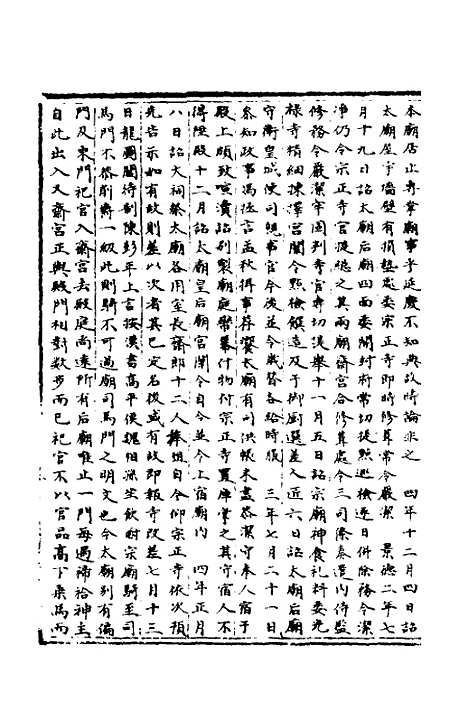 本廟居止專掌廟事李延慶不知典故時論非之　四年十二月四日詔
太廟屋宇墻壁有損墊處委宗正寺即時修葺常令嚴潔　景德二年七
月十九日詔太廟后廟四面委開封府常切提點巡檢逐日併除務令潔
淨仍令宗正寺官提總之其兩廟齋宮合修葺處令三司除奏遣內侍監
修務令嚴潔牢固判寺官常切提舉十一月五日詔宗廟神食禮料委光
祿寺精細揀擇宮闈令點檢饌造及于御廚選差人　近六日詔太廟后廟
守衛皇城使司親事官今後並令歲替各給時服　三年七月二十一日
參知政事馮拯言孟秋攝事荐饗太廟有司供帳未盡嚴潔守奉人宿于
殿上頗致喧瀆詔別製廟庭帟幕什物付宗正寺置庫掌之其守宿人不
得陞殿十二月詔太廟皇后廟宮闈令自今並令上宿廟內　四年正月
八日詔大祠祭太廟各用室長齋郎十二人捧俎自今仰宗正寺依次預
先告示如有故則差以次者其已定名後或有故即報寺改差七月十三
日龍圖閣待制陳彭年上言按漢書高平侯魏相孫坐飲酎宗廟騎至司
馬門不敬削爵一級此則騎不可過廟司馬門之明文也今太廟別有偏
門及東門祀官入齋宮去殿庭尚遠所有后廟唯止一門每遇禘祫神主
自此出入又齋宮正與殿門相對數步而已祀官不以官品高下乘馬而